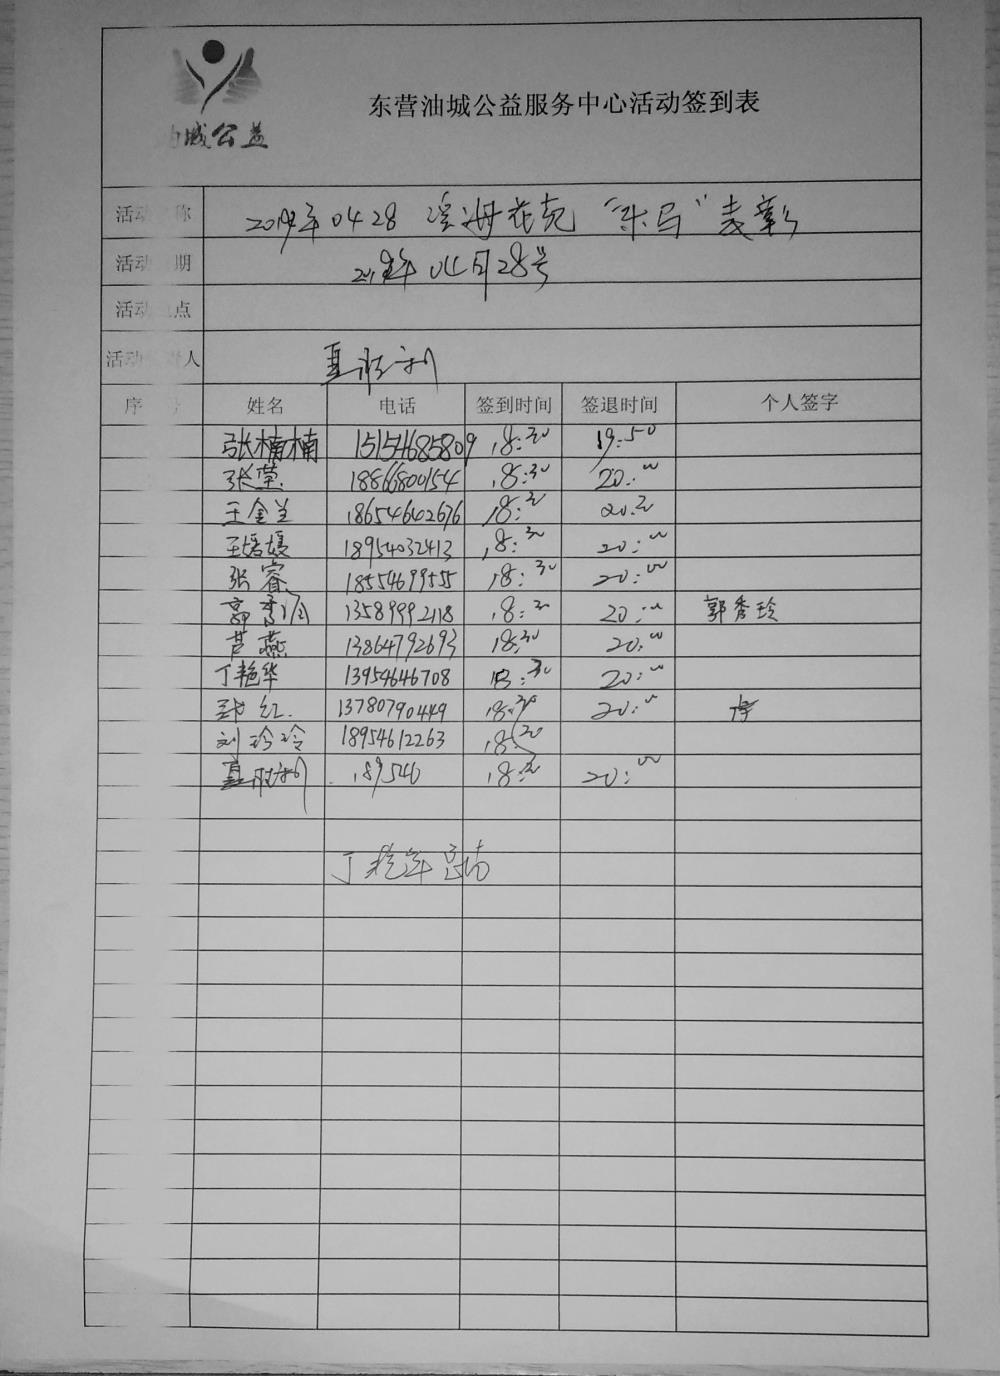 油城公益
东营油城公益服务中心活动签到表
活动名称 2018年0428 滨海花苑 "乐马" 表彰
活动日期 2018年04月28号
活动地点
活动负责人
序号 姓名 电话 签到时间 签退时间 个人签字
张楠楠 15154685809 18:30 19:50
张莹 18866800154 18:30 20:00
王金兰 18654602676 18:30 20:30
18954032413 18:30 20:00
张睿 1855469955 18:30 20:00
郭秀玲 13589992118 18:30 20:00 郭秀玲
芦燕 13864792693 18:30 20:00
丁艳华 13954646708 18:30 20:00
红 13780790449 18:30 20:00
刘珍玲 18954612263 18:30
189546 18:30 20:00
丁艳华